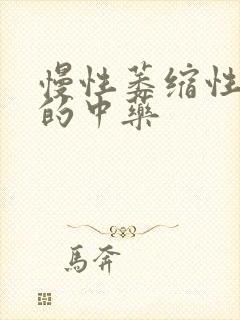 慢性萎缩性
的中药
馬奔